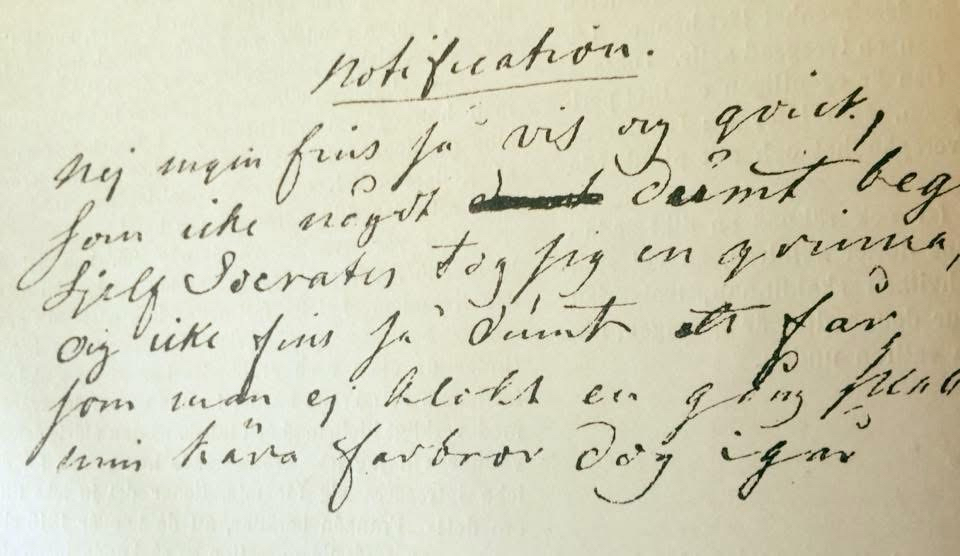 Notification.
Nej ingen fins så vis og qvick,
Som icke något dumt beg
Sjelf Socrates tog sig en qvinna,
og icke fins så dumt ett får
som man ej klokt en gång
min kära farbror dog igår